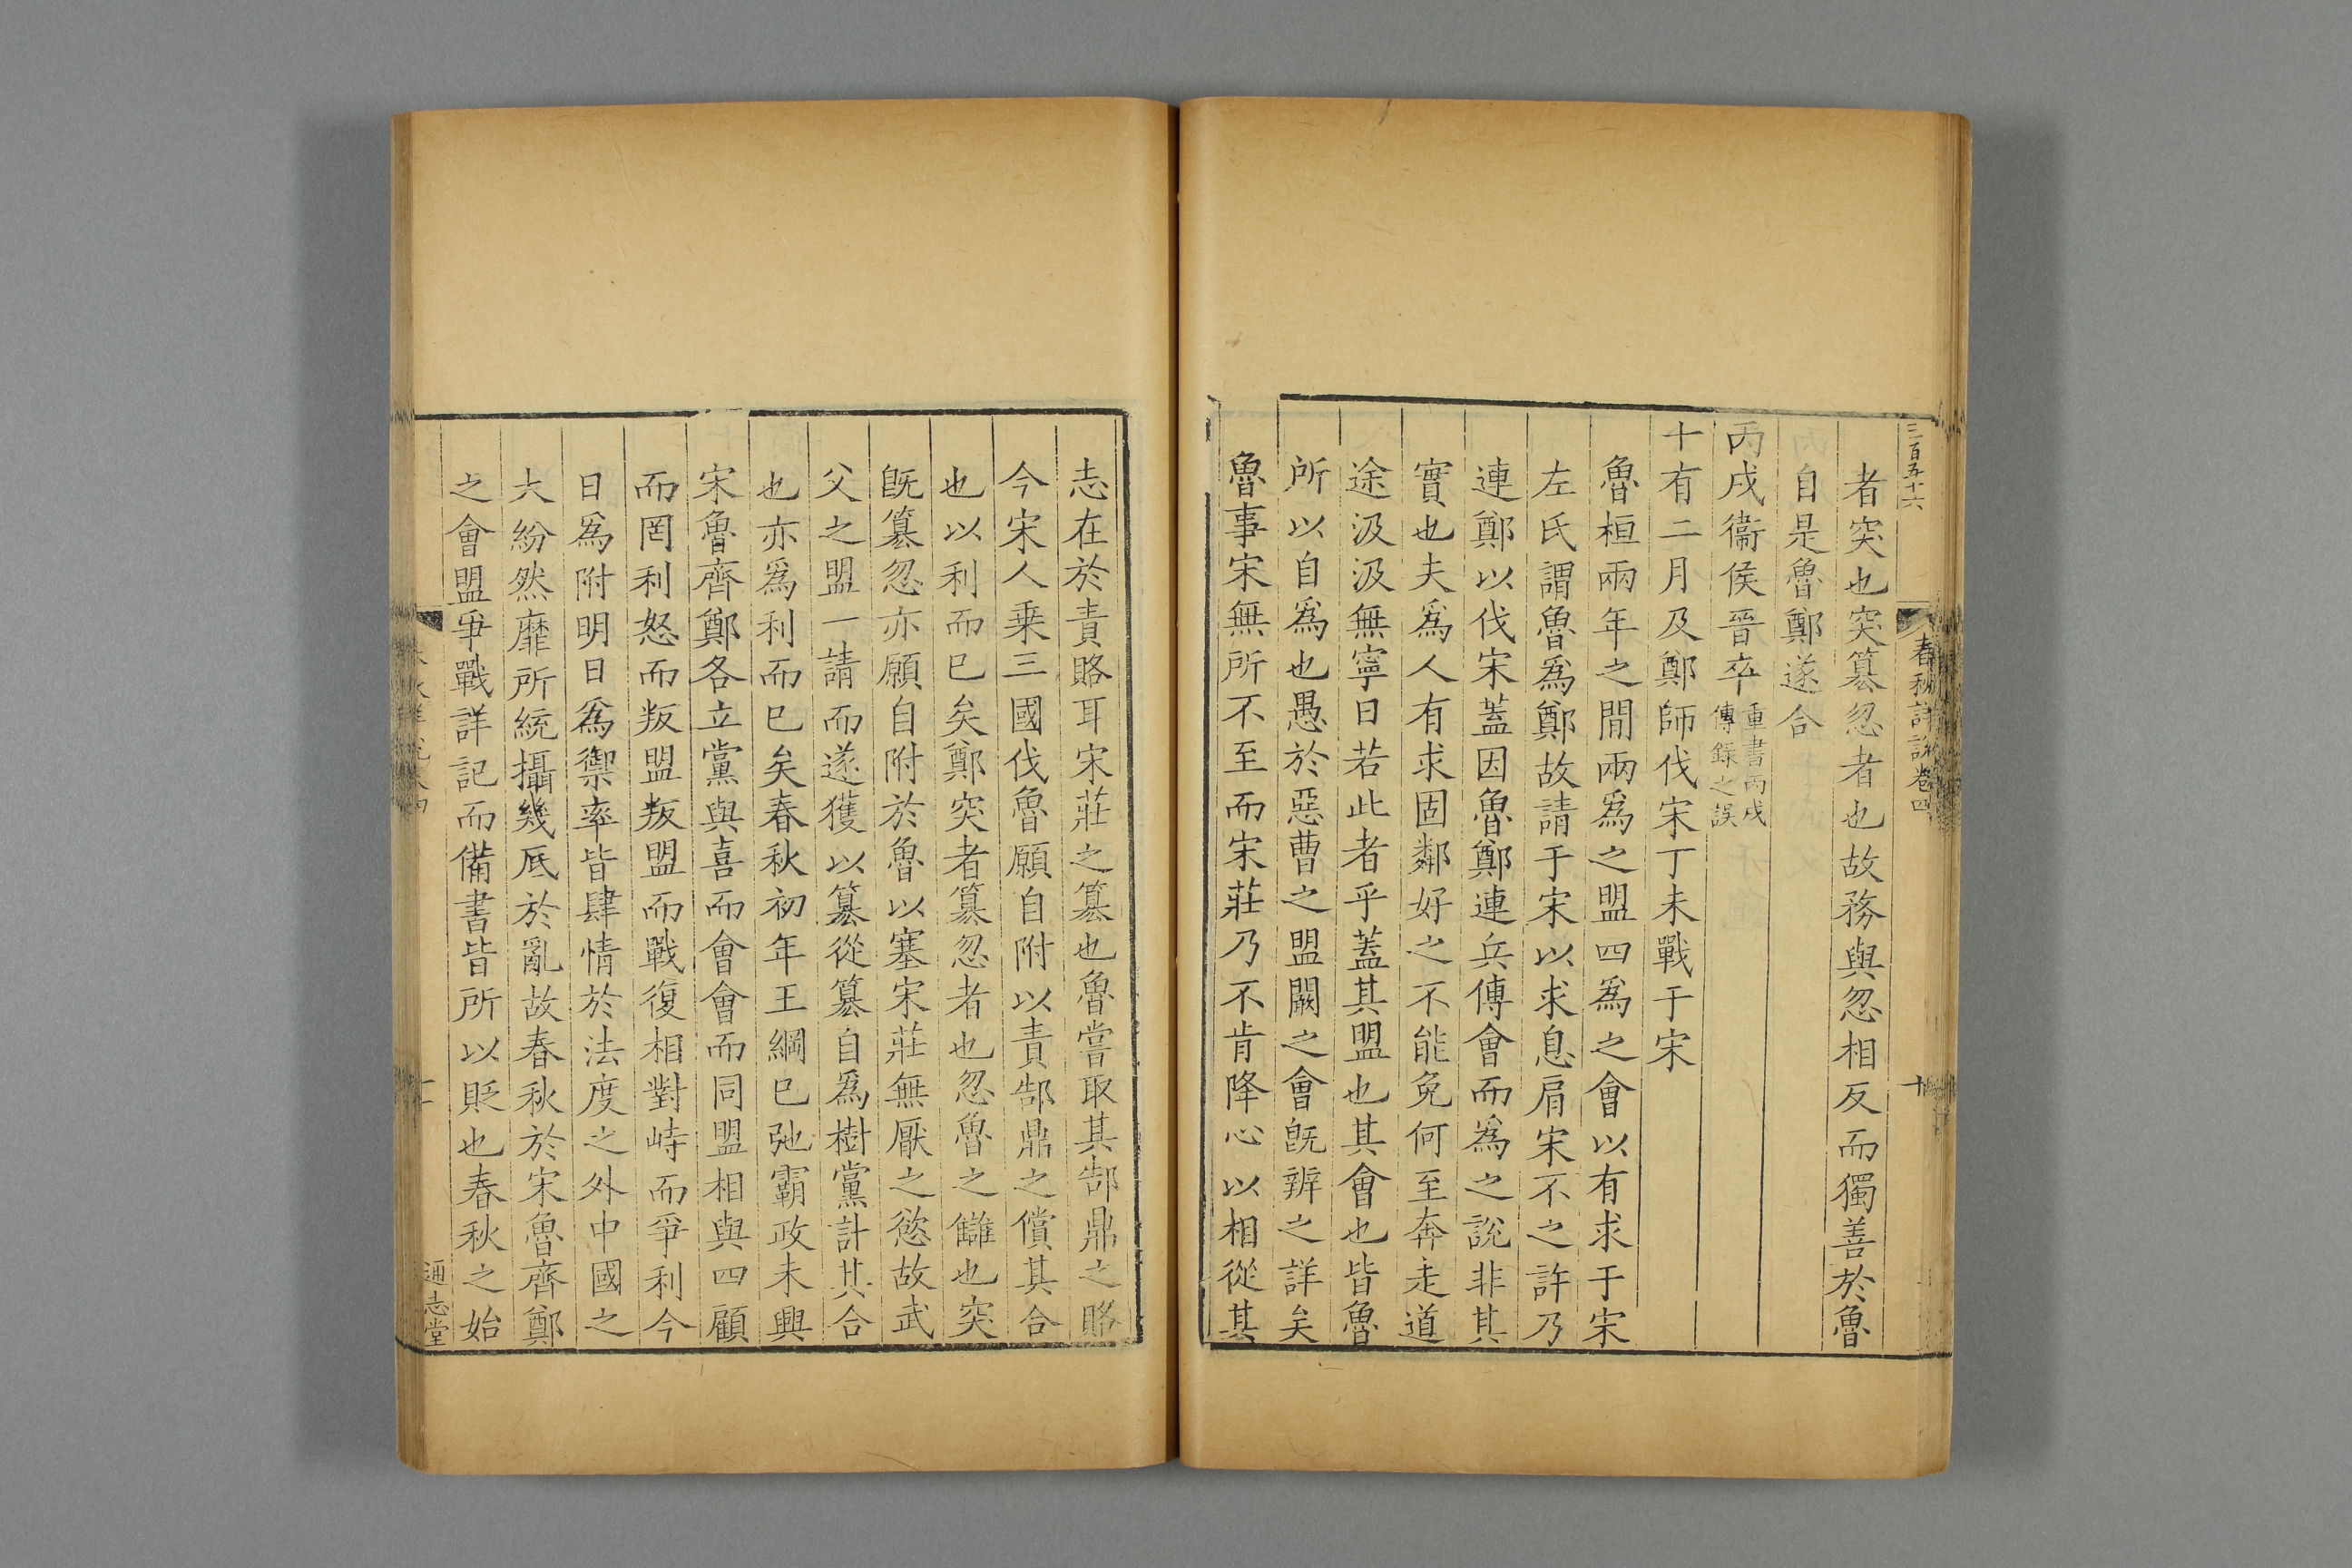 三百五十六
春秋詳說卷四
十
者突也突篡忽者也故務與忽相反而獨善於魯
自是魯鄭遂合
丙戌衞侯晉卒重書丙戌傳錄之誤
十有二月及鄭師伐宋丁未戰于宋
魯桓兩年之間兩爲之盟四爲之會以有求于宋
左氏謂魯爲鄭故請于宋以求息肩宋不之許乃
連鄭以伐宋蓋因魯鄭連兵傅會而爲之說非其
實也夫爲人有求固鄰好之不能免何至奔走道
途汲汲無寧日若此者乎蓋其盟也其會也皆魯
所以自爲也愚於惡曹之盟闞之會旣辨之詳矣
魯事宋無所不至而宋莊乃不肯降心以相從其
志在於責賂耳宋莊之篡也魯嘗取其郜鼎之賂
今宋人乗三國伐魯願自附以責郜鼎之償其合
也以利而已矣鄭突者篡忽者也忽魯之讎也突
旣篡忽亦願自附於魯以塞宋莊無厭之慾故武
父之盟一請而遂獲以篡從篡自爲樹黨計其合
也亦爲利而已矣春秋初年王綱已弛霸政未興
宋魯齊鄭各立黨與喜而會會而同盟相與四顧
而罔利怒而叛盟叛盟而戰復相對峙而爭利今
日爲附明日爲禦率皆肆情於法度之外中國之
大紛然靡所統攝幾厎於亂故春秋於宋魯齊鄭
之會盟爭戰詳記而備書皆所以貶也春秋之始
通志堂